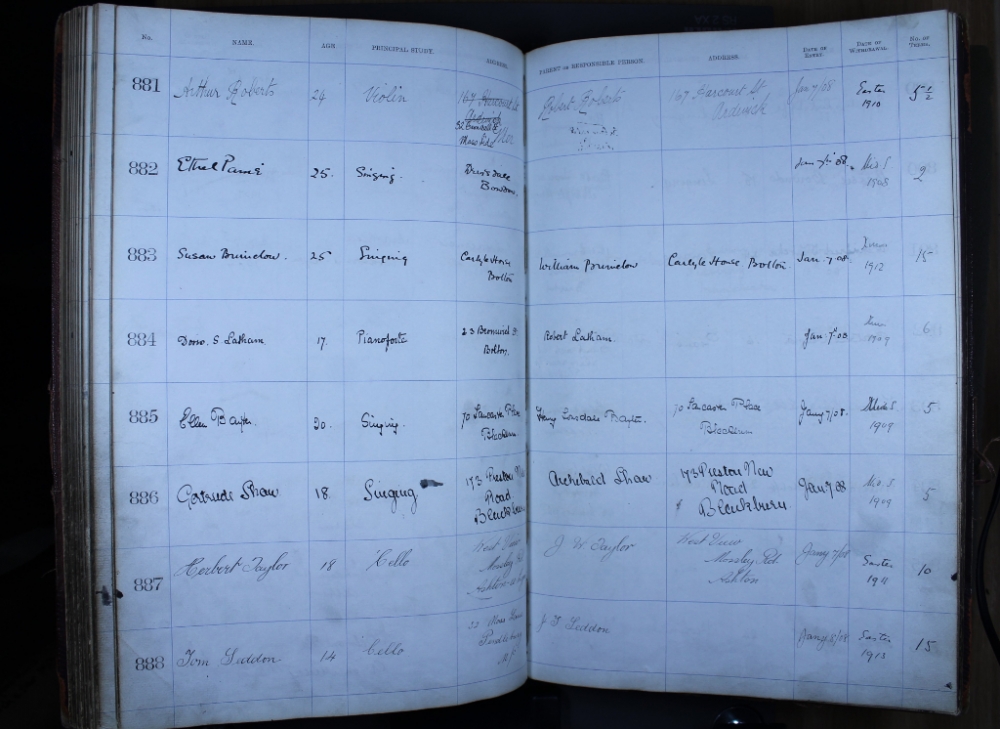 No. NAME. AGE PRINCIPAL STUDY. ADDRESS. PARENT OR RESPONSIBLE PERSON. ADDRESS. DATE OF ENTRY. DATE OF WITHDRAWAL. No. OF TERMS.
881 Arthur Roberts 24 Violin 167 Harcourt St Robert Roberts 167 Harcourt St Jan 7/08 Easter 5½
Ardwick Ardwick 1910
Moss Side
882 Ethel 25. Singing. Jan 7th 08. Mids 2
Bowdon. 1908
883 Susan 25 Singing Carlyle House William Carlyle House Bolton. Jan. 7. 08. 15
Bolton 1912
884 S. Latham 17. Pianoforte 23 Robert Latham. Jan 7th 08 6
Bolton, 1909
885 Ellen Baxter. 30. Singing. 70 Lancaster Place Henry Lonsdale Baxter. 70 Lancaster Place Jany 7/08. Mids 5
Blackburn Blackburn 1909
886 Gertrude Shaw 18 Singing 173 Preston New Archibald Shaw 173 Preston New Jan 7 08 Mids 5
Road Road 1909
Blackburn Blackburn.
887 Herbert Taylor 18 'Cello West View J W Taylor West View Jany 7/08 Easter 10
Mossley Rd Mossley Rd. 1911
Ashton
888 Tom Seddon 14 'Cello J T Seddon Jany 8/08 Easter 15
Pendlebury 1913